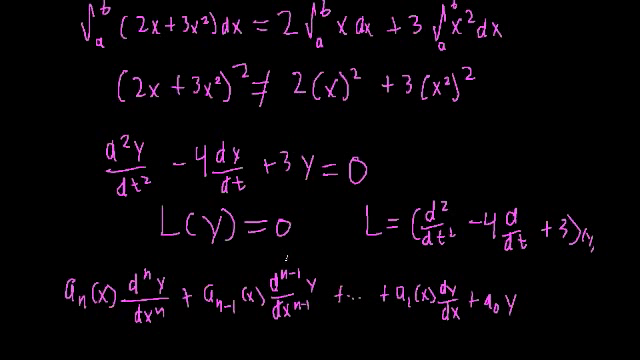 ∫_a^b (2x+3x²)dx = 2∫_a^b x dx + 3∫_a^b x² dx
(2x+3x²)² ≠ 2(x)² + 3(x²)²
d²y/dt² - 4 dy/dt + 3y = 0
L(y) = 0 L = (d²/dt² - 4 d/dt + 3)(y)
a_n(x) dⁿy/dxⁿ + a_{n-1}(x) d^{n-1}y/dx^{n-1} + ... + a_1(x) dy/dx + a_0 y